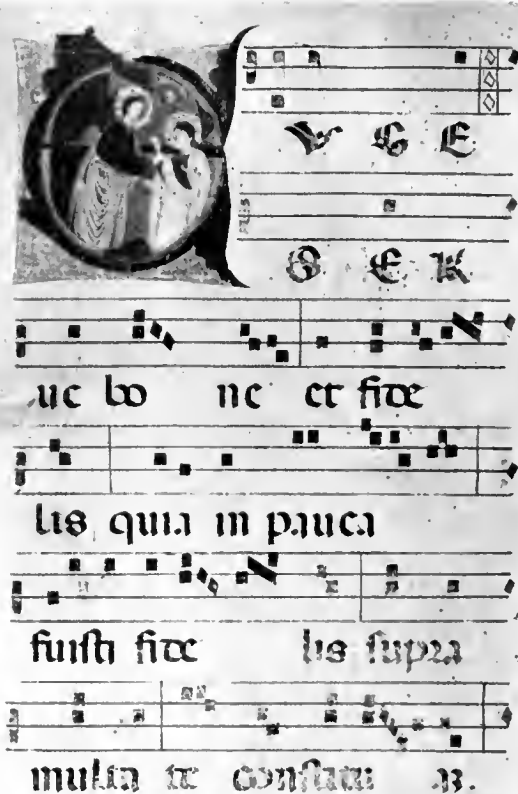 V G E
S E R
ue bo ne et fide
lis quia in pauca
fuisti fide lis supra
multa te consti